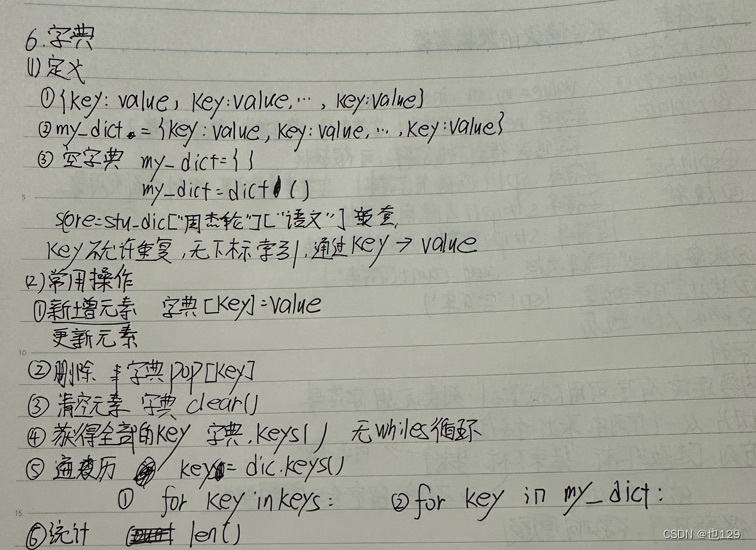 6.字典
(1)定义
①{key: value, key:value,…, key:value}
②my_dict = {key: value, key:value,…, key:value}
③空字典 my_dict={ }
my_dict=dict()
5
score=stu_dic["周杰轮"]["语文"] 嵌套
key不允许重复,无下标索引,通过key→value
(2)常用操作
①新增元素 字典[key]=value
更新元素
10
②删除 字典pop[key]
③清空元素 字典 clear()
④获得全部的key 字典.keys() 无whiles循环
⑤遍历 keys=dic.keys()
① for key in keys: ② for key in my_dict:
15
⑥统计 len()
CSDN @也129